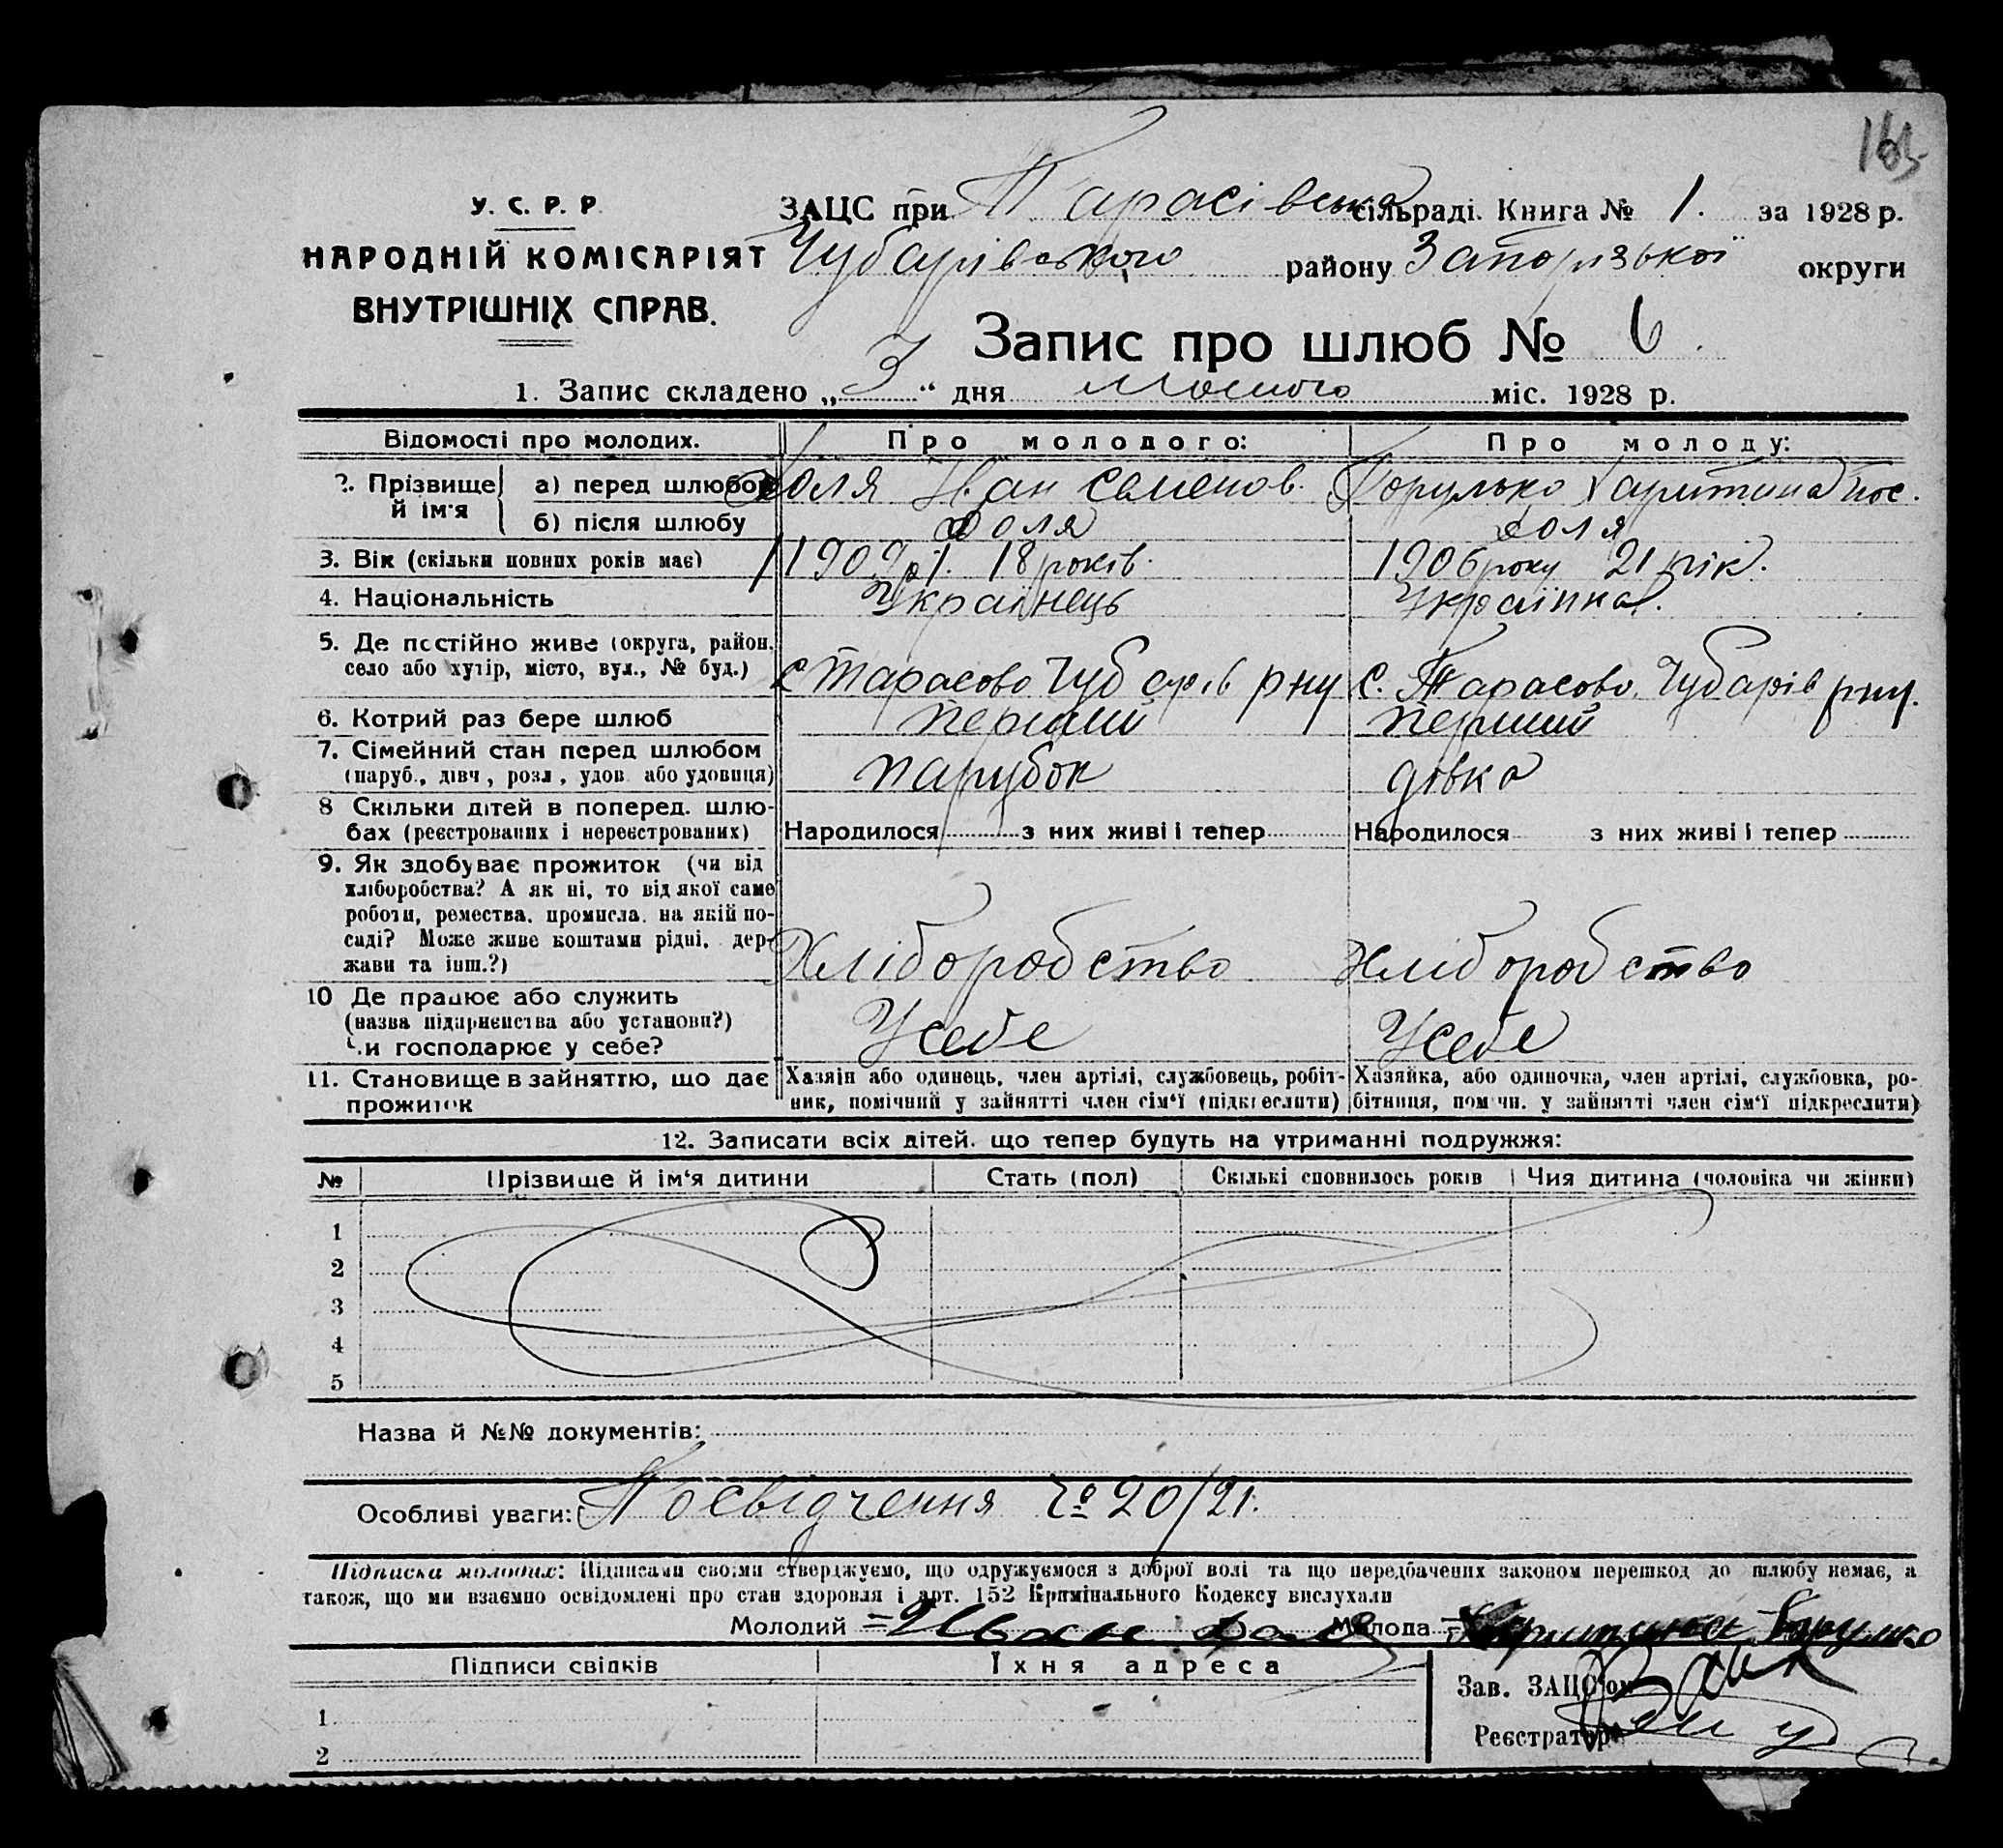 165
У. С. Р. Р.
НАРОДНІЙ КОМІСАРІЯТ
ВНУТРІШНІХ СПРАВ.
ЗАЦС при Тарасівська сільраді. Книга № 1. за 1928 р.
Чубарівського району Запорізької округи
Запис про шлюб № 6.
1. Запис складено „ 3 “ дня лютого міс. 1928 р.
Відомості про молодих. Про молодого: Про молоду:
2. Прізвище й ім'я а) перед шлюбом Доля Іван Семенов. Борулько Харитина
б) після шлюбу Доля Доля
3. Вік (скільки повних років має) 1909 р. 18 років. 1906 року 21 рік.
4. Національність Украінець Украінка.
5. Де постійно живе (округа, район, село або хутір, місто, вул., № буд.) с Тарасово Чубарів рну с. Тарасово Чубарів рну.
6. Котрий раз бере шлюб перший перший
7. Сімейний стан перед шлюбом (паруб., дівч., розл., удов. або удовиця) парубок дівка
8 Скільки дітей в поперед. шлюбах (реєстрованих і нереєстрованих) Народилося з них живі і тепер Народилося з них живі і тепер
9. Як здобуває прожиток (чи від
хліборобства? А як ні, то від якої саме
роботи, ремества, промисла, на якій по-
саді? Може живе коштами рідні, дер-
жави та інш.?) Хліборобство Хліборобство
10 Де працює або служить
(назва підприємства або установи?)
Чи господарює у себе? У себе У себе
11. Становище в зайняттю, що дає прожиток
Хазяін або одинець, член артілі, службовець, робіт-
ник, помічний у зайнятті член сім'ї (підкреслити)
Хазяйка, або одиночка, член артілі, службовка, ро-
бітниця, помічн. у зайнятті член сім'ї підкреслити)
12. Записати всіх дітей. що тепер будуть на утриманні подружжя:
№ Прізвище й ім'я дитини Стать (пол) Скількі сповнилось років Чия дитина (чоловіка чи жінки)
1
2
3
4
5
Назва й №№ документів:
Особливі уваги: Посвідчення № 20/21.
Підписка молодих: Підписами своїми стверджуємо, що одружуємося з доброї волі та що передбачених законом перешкод до шлюбу немає, а
також, що ми взаємно освідомлені про стан здоровля і арт. 152 Кримінального Кодексу вислухали
Молодий Иван Доля Молода Харитина Борулько
Підписи свідків Їхня адреса
Зав. ЗАЦС'ом
1
Реєстратор
2